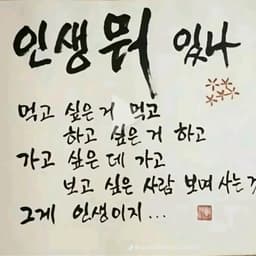 인생 뭐 있나
먹고 싶은거 먹고
하고 싶은 거 하고
가고 싶은 데 가고
보고 싶은 사람 보며 사는 것
그게 인생이지...